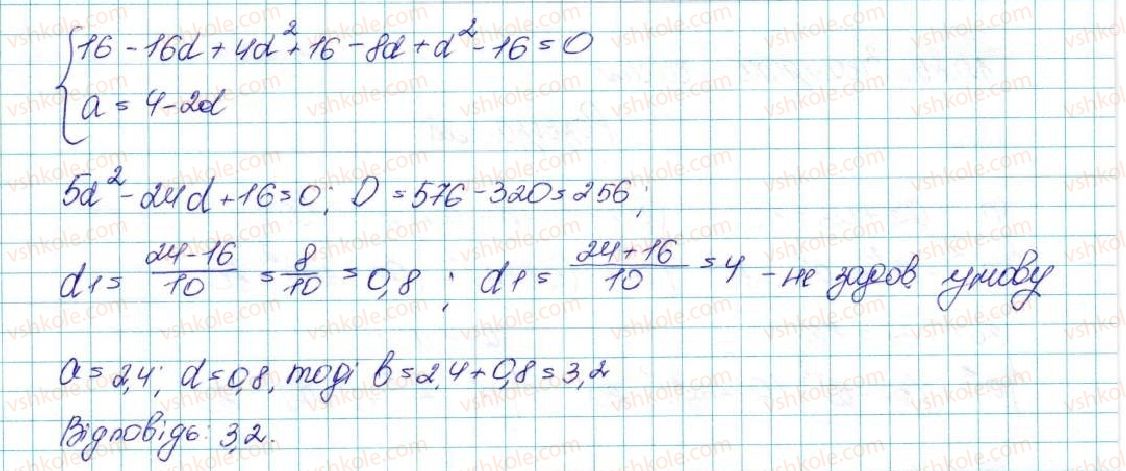 {16 - 16d + 4d² + 16 - 8d + d² - 16 = 0
{a = 4 - 2d
5d² - 24d + 16 = 0; D = 576 - 320 = 256;
d₁ = (24 - 16)/10 = 8/10 = 0,8; d₁ = (24 + 16)/10 = 4 - не задов. умову
a = 2,4; d = 0,8, тоді b = 2,4 + 0,8 = 3,2
Відповідь: 3,2.